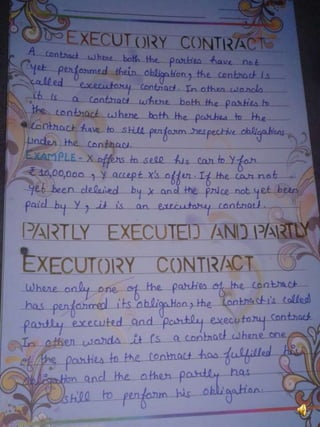 EXECUTORY CONTRACT
A contract where both the parties have not
yet performed their obligation, the contract is
called executory contract. In other words
it is a contract where both the parties to
the contract where both the parties to the
contract have to still perform respective obligations
under the contract.
EXAMPLE - X offers to sell his car to Y for
₹ 10,00,000, Y accept X's offer. If the car not
yet been deleived by x and the price not yet been
paid by Y, it is an executory contract.
PARTLY EXECUTED AND PARTLY
EXECUTORY CONTRACT
Where only one of the parties of the contract
has performed its obligation, the contract is called
partly executed and partly executory contract
In other words it is a contract where one
of the parties to the contract has fulfilled his
obligation and the other partly has
still to perform his obligation.